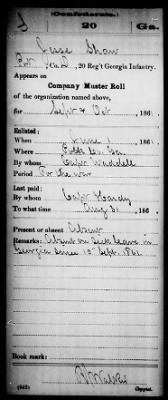 Confederate.
S 20 Ga.
Jesse Shaw
Pvt, Co. D, 20 Reg't Georgia Infantry.
Appears on
Company Muster Roll
of the organization named above,
for Sept & Oct, 186
Enlisted:
When June 1, 186
Where Cobb Co. Ga.
By whom Capt Waddell
Period For the war
Last paid:
By whom Capt Hardy
To what time Aug 31, 186
Present or absent Absent
Remarks: Absent on Sick leave in
Georgia since 15 Sept. 1861
Book mark:
(642) Copyist.